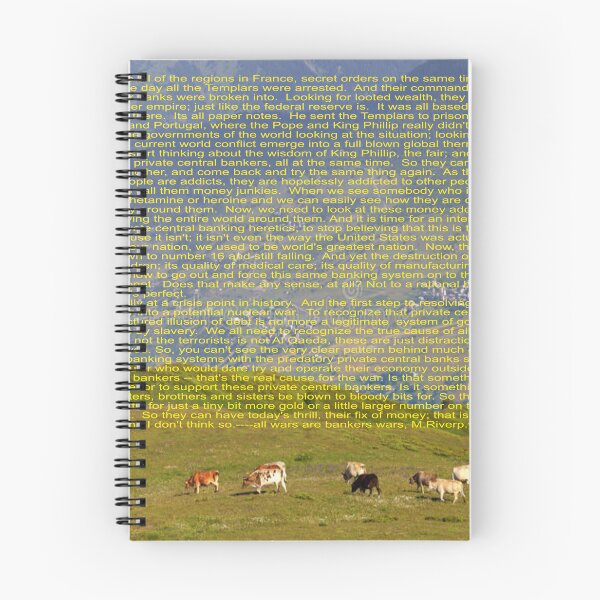 of the regions in France, secret orders on the same tim
e day all the Templars were arrested. And their command
anks were broken into. Looking for looted wealth, they
er empire; just like the federal reserve is. It was all based
ere. Its all paper notes. He sent the Templars to prison
and Portugal, where the Pope and King Phillip really didn't
governments of the world looking at the situation; lookin
current world conflict emerge into a full blown global ther
rt thinking about the wisdom of King Phillip, the fair; and
private central bankers, all at the same time. So they can
her, and come back and try the same thing again. As th
ople are addicts, they are hopelessly addicted to other peo
all them money junkies. When we see somebody who i
hetamine or heroine and we can easily see how they are d
around them. Now, we need to look at these money add
ing the entire world around them. And it is time for an inte
e central banking heretics, to stop believing that this is
use it isn't; it isn't even the way the United States was actu
nation, we used to be world's greatest nation. Now, th
n to number 16 and still falling. And yet the destruction o
tion; its quality of medical care; its quality of manufacturin
now to go out and force this same banking system on to th
Does that make any sense, at all? Not to a rational
perfect.
at a crisis point in history. And the first step to resolving
to a potential nuclear war. To recognize that private ce
tured illusion of debt is no more a legitimate system of go
slavery. We all need to recognize the true cause of al
not the terrorists, is not Al Qaeda, these are just distractio
So, you can't see the very clear pattern behind much
banking systems with the predatory private central banks s
who would dare try and operate their economy outsid
bankers -- that's the real cause for the war. Is that someth
or to support these private central bankers. Is it someth
ers, brothers and sisters be blown to bloody bits for. So th
for just a tiny bit more gold or a little larger number on t
So they can have today's thrill, their fix of money; that is
I don't think so.----all wars are bankers wars, M.Riverp